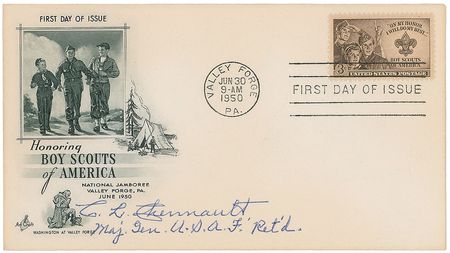 FIRST DAY OF ISSUE
Honoring
BOY SCOUTS
of AMERICA
NATIONAL JAMBOREE
VALLEY FORGE, PA.
JUNE 1950
WASHINGTON AT VALLEY FORGE
VALLEY FORGE
JUN 30
9-AM
1950
PA.
"ON MY HONOR
I WILL DO MY BEST"
BOY SCOUTS
OF AMERICA
3¢
UNITED STATES POSTAGE
FIRST DAY OF ISSUE
C. L. Chennault
Maj. Gen. U.S.A.F. Ret'd.